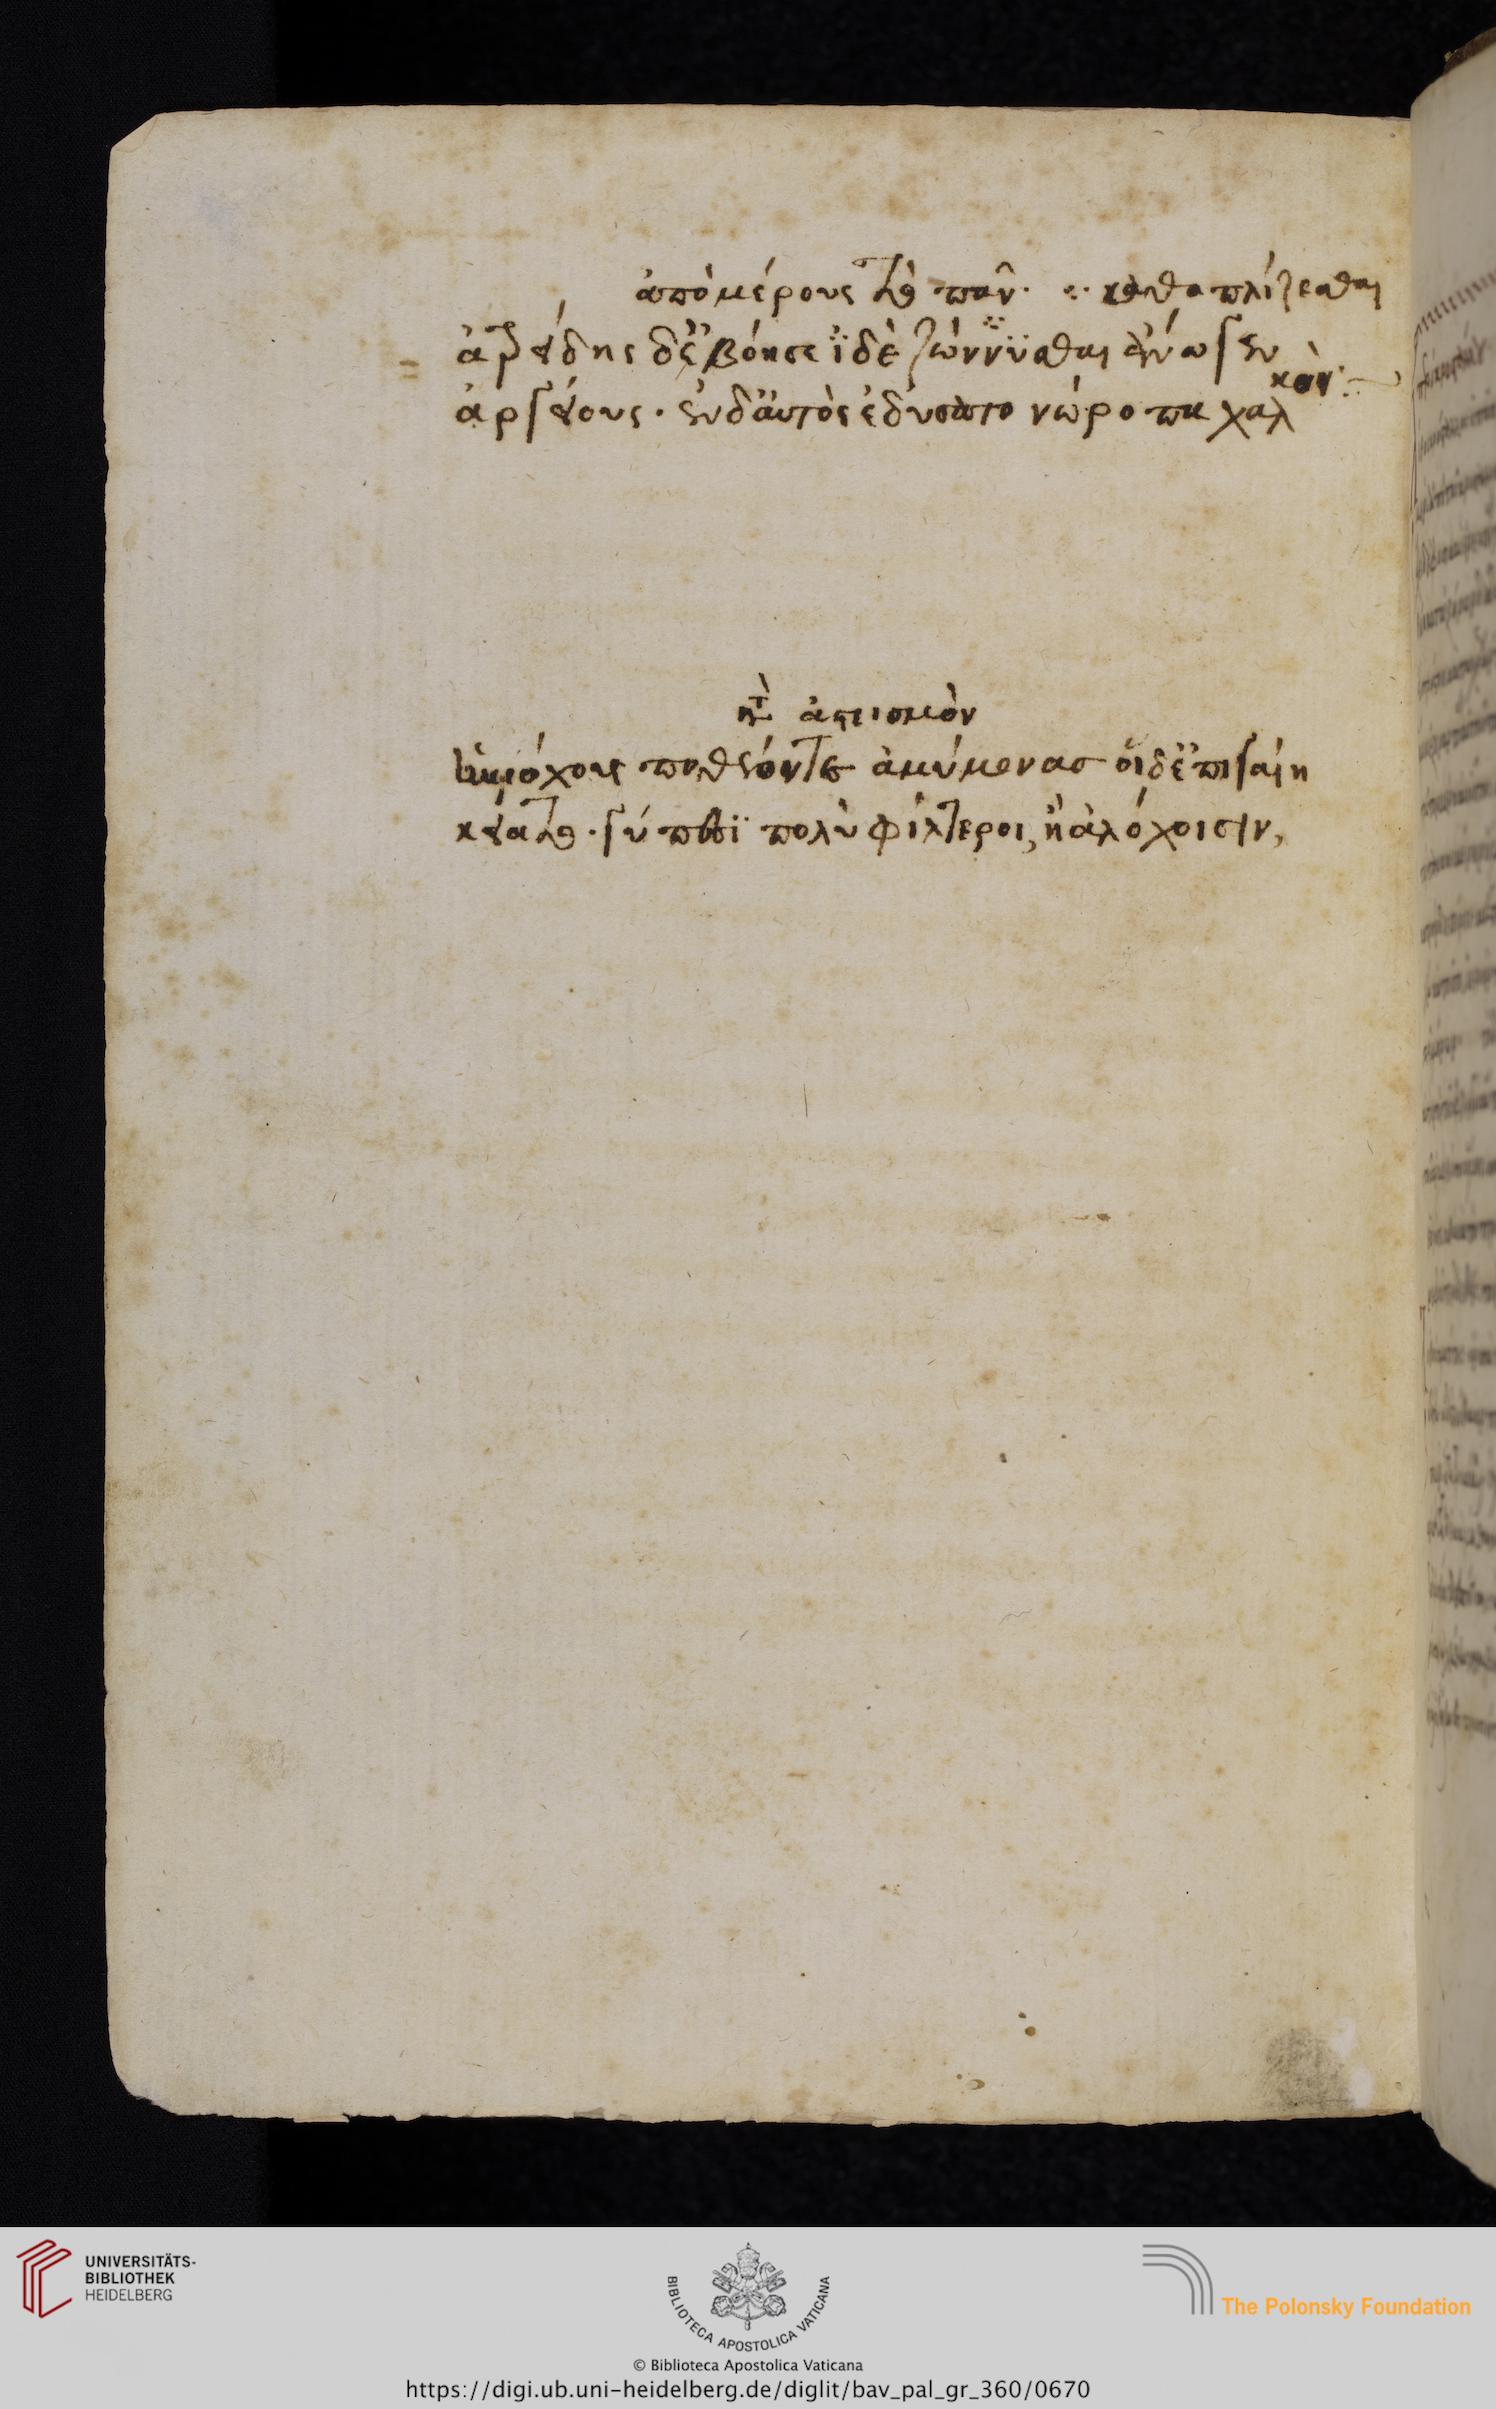 ἀπὸ μέρους τὸ πᾶν · καθοπλίζεσθαι
ἀτρείδης δ' ἐβόησεν ϊδὲ ζώννϋσθαι ἄνωγεν
κὸν
ἀργείους · ἐν δ' αὐτὸς ἐδύσατο νώροπα χαλ
κατὰ ἀστεϊσμὸν
ἡνιόχους ποθέοντες ἀμύμονας οἱ δ' ἐπὶ γαίη
κείατο · γύπεσσϊ πολὺ φίλτεροι, ἢ ἀλόχοισιν,
UNIVERSITÄTS-
BIBLIOTHEK
HEIDELBERG
BIBLIOTECA APOSTOLICA VATICANA
The Polonsky Foundation
© Biblioteca Apostolica Vaticana
https://digi.ub.uni-heidelberg.de/diglit/bav_pal_gr_360/0670